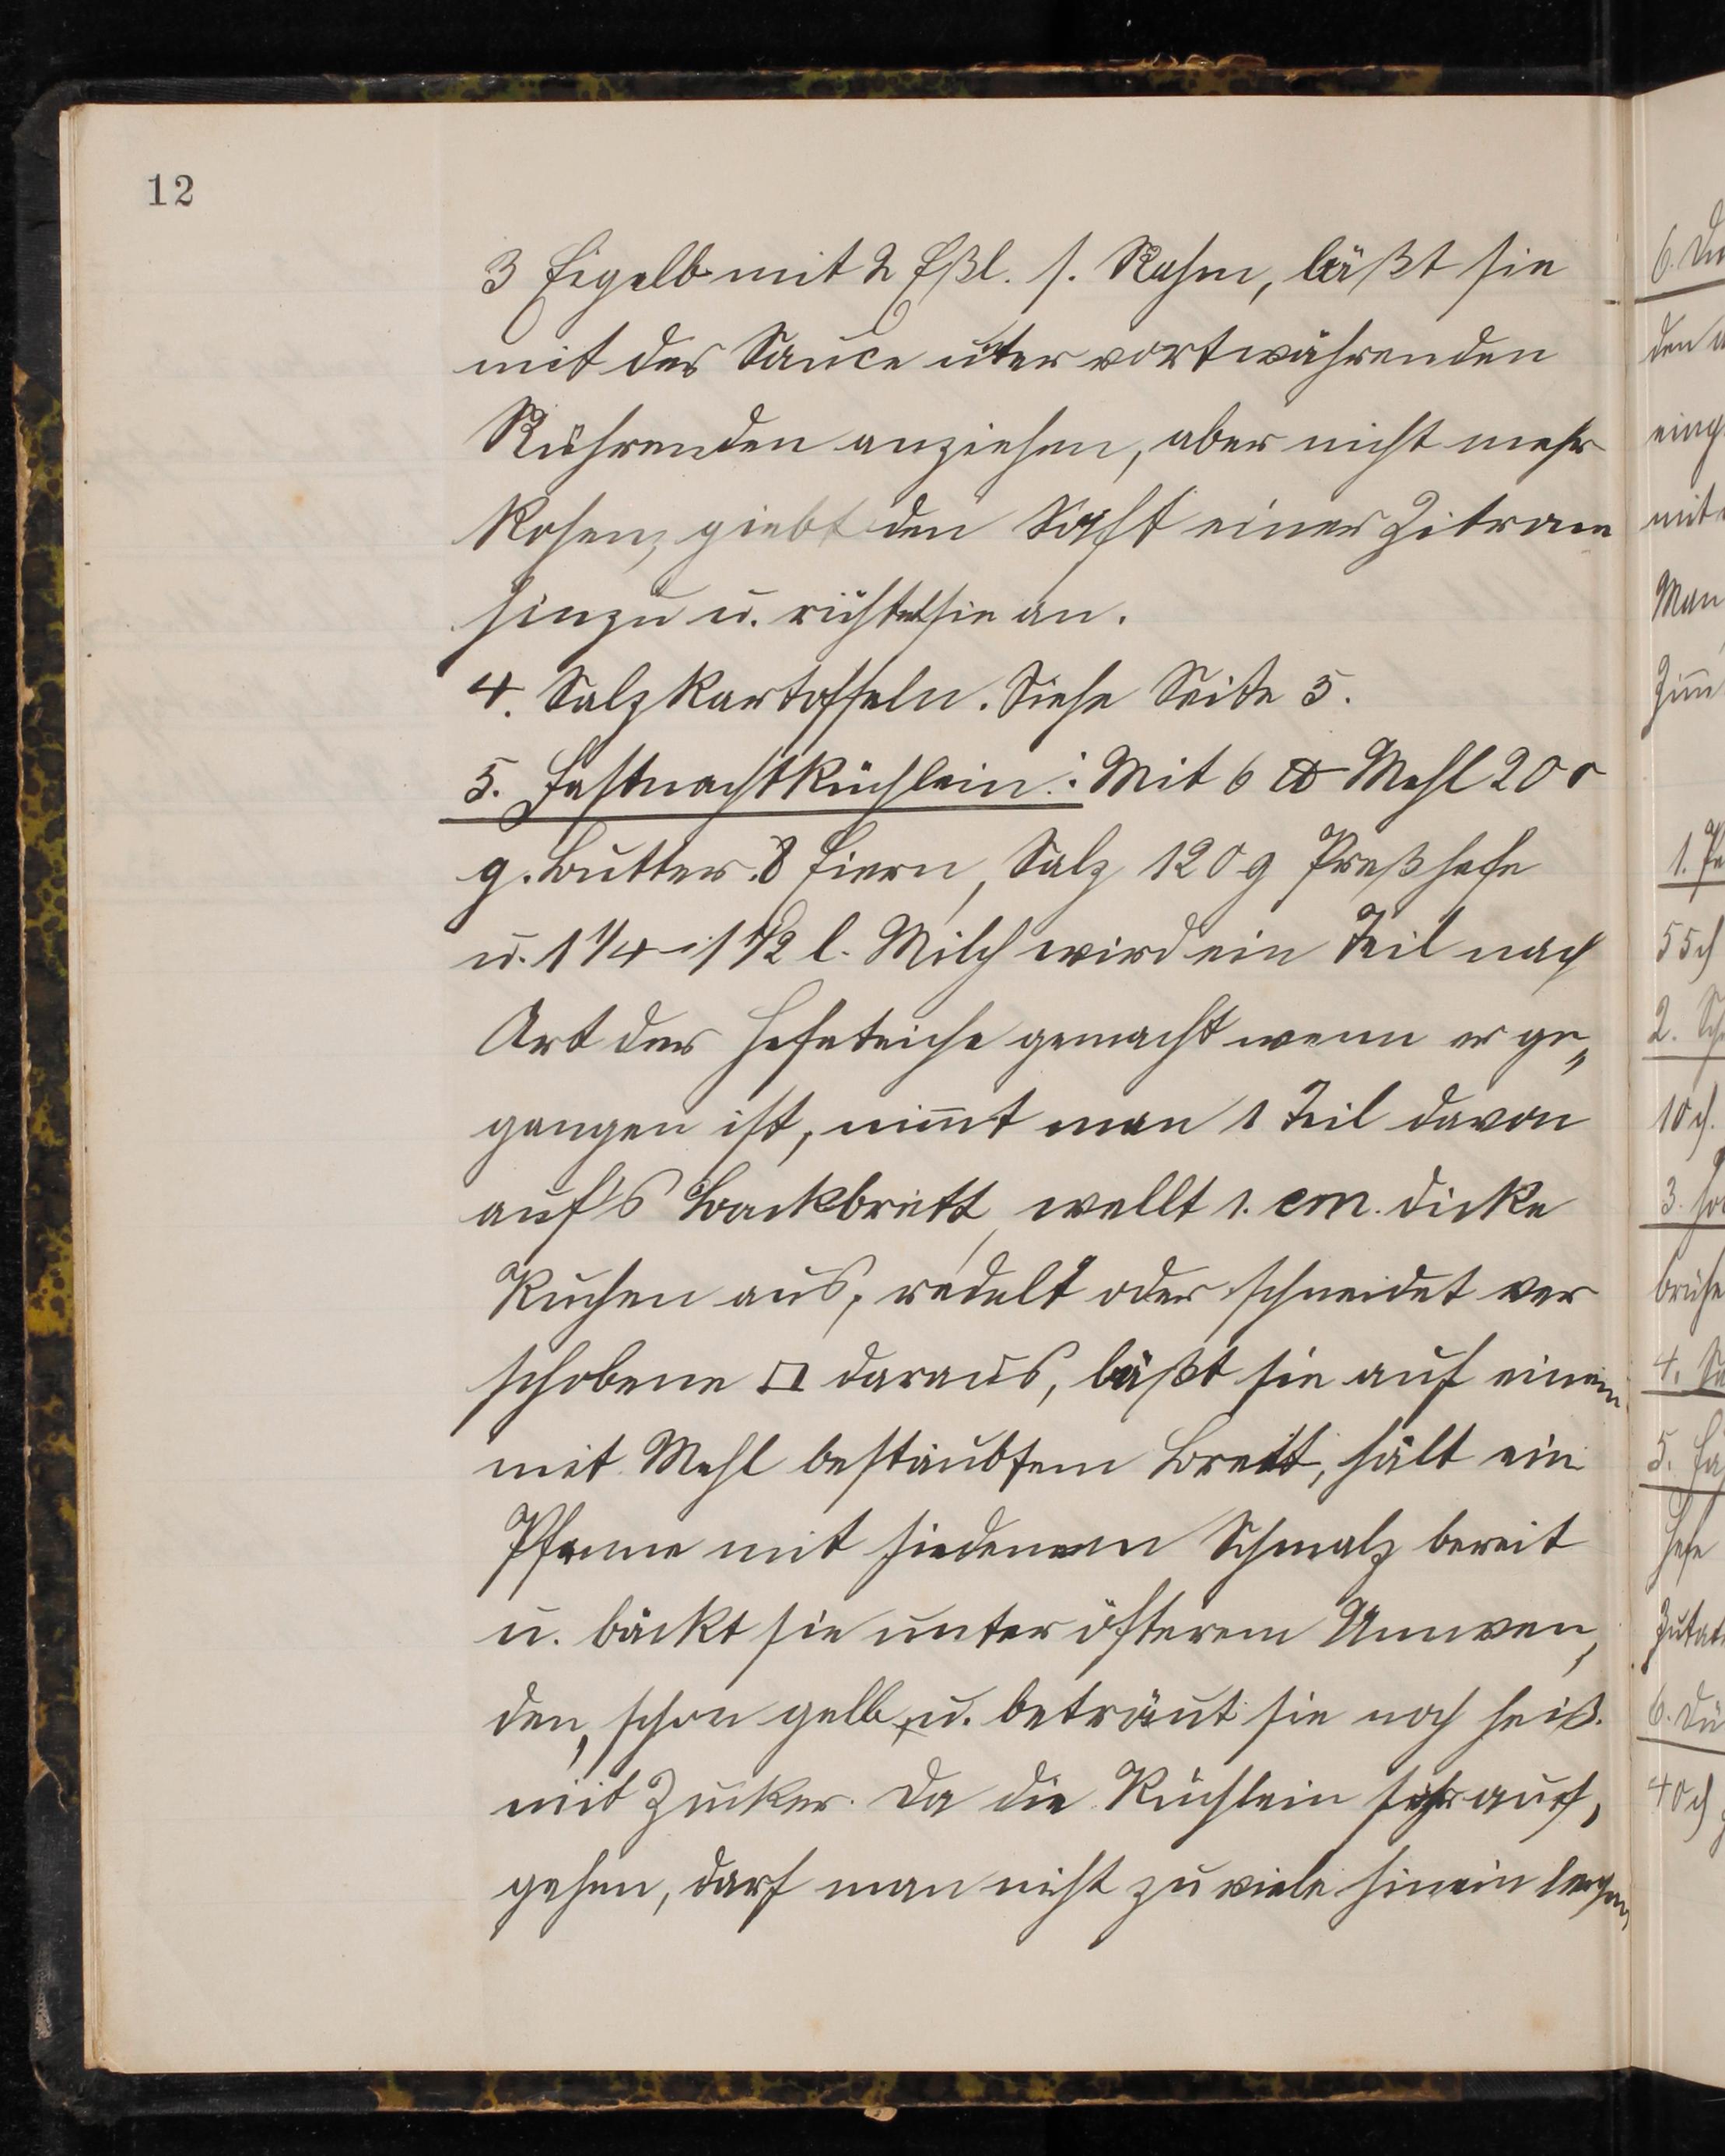 12
3 Eigelb mit 2 Eßl. s. Rahm, läßt sie
mit der Sauce unter vortwährenden
Rührenden anziehen, aber nicht mehr
kochen, giebt den Saft einer Zitrone
hinzu u. richtet sie an.
4. Salzkartoffeln. Siehe Seite 5.
5. Fastnachtküchlein: Mit 6 ℔ Mehl 200
g. Butter. 8 Eiern, Salz 120 g Preßhefe
u. 1 1/4 - 1 1/2 l. Milch wird ein Teil nach
Art der Hefeteiche gemacht wenn er ge„
gangen ist, nim̅t man 1 Teil davon
auf's Backbrett, wellt 1. cm. dicke
Kuchen aus, redelt oder schneidet ver
schobene □ daraus, läßt sie auf einem
mit Mehl bestäubtem Brett, hält ein
Pfanne mit siedenem Schmalz bereit
u. bäckt sie unter öfterem Umwen„
den, schon gelb, u. beträut sie noch heiß.
mit Zucker. Da die Küchlein sehr auf„
gehen, darf man nicht zu viele hinein legen,
6.
den
eing
mit
Man
Zim
1.
55
2. Sch
10
3.
brühe
4.
5.
Hefe
Zutat
6. Dü
40